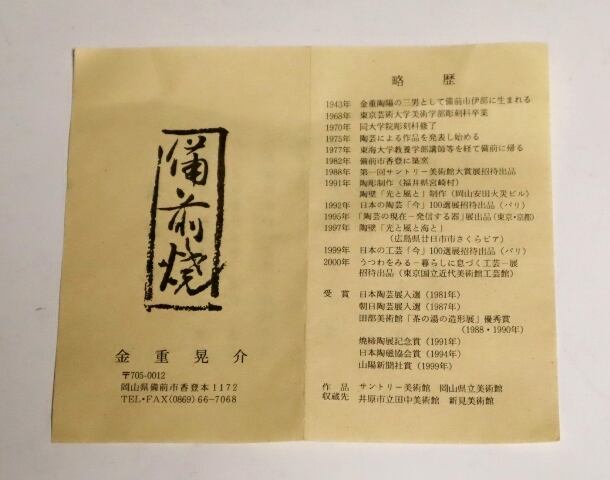 備前焼
金重晃介
〒705-0012
岡山県備前市香登本1172
TEL・FAX(0869)66-7068
略歴
1943年 金重陶陽の三男として備前市伊部に生まれる
1968年 東京芸術大学美術学部彫刻科卒業
1970年 同大学院彫刻科修了
1975年 陶芸による作品を発表し始める
1977年 東海大学教養学部講師等を経て備前に帰る
1982年 備前市香登に築窯
1988年 第一回サントリー美術館大賞展招待出品
1991年 陶彫制作(福井県宮崎村)
陶壁「光と風と」制作(岡山安田火災ビル)
1992年 日本の陶芸「今」100選展招待出品(パリ)
1995年 「陶芸の現在−発信する器」展出品(東京・京都)
1997年 陶壁「光と風と海と」
(広島県廿日市市さくらピア)
1999年 日本の工芸「今」100選展招待出品(パリ)
2000年 うつわをみる−暮らしに息づく工芸−展
招待出品(東京国立近代美術館工芸館)
受賞 日本陶芸展入選(1981年)
朝日陶芸展入選(1987年)
田部美術館「茶の湯の造形展」優秀賞
(1988・1990年)
焼締陶展記念賞(1991年)
日本陶磁協会賞(1994年)
山陽新聞社賞(1999年)
作品 サントリー美術館 岡山県立美術館
収蔵先 井原市立田中美術館 新見美術館